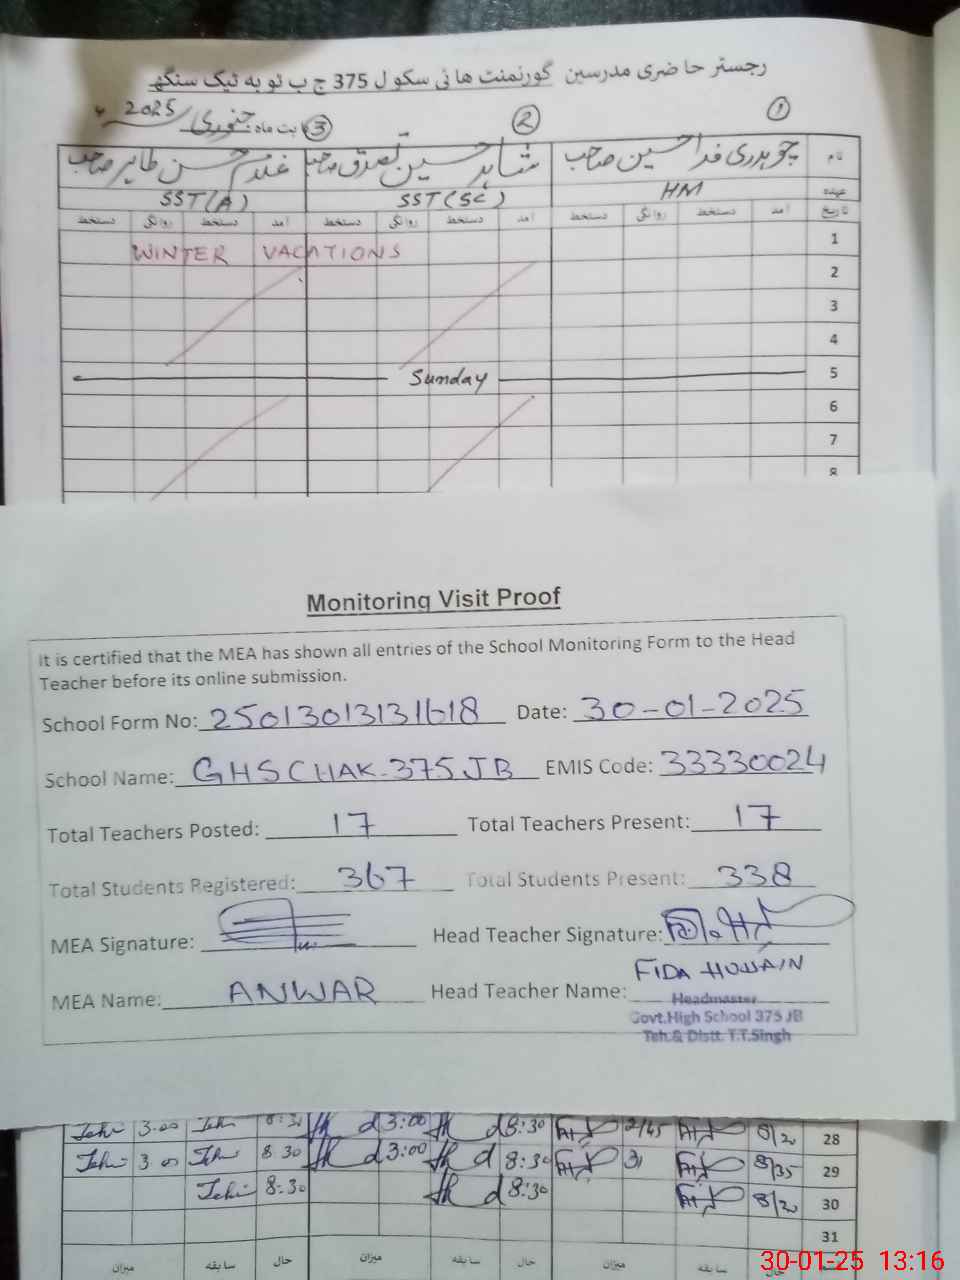 رجسٹر حاضری مدرسین گورنمنٹ ہائی سکول 375 ج ب ٹوبہ ٹیک سنگھ
بت ماہ جنوری 2025ء
① ② ③
نام چوہدری فدا حسین صاحب شاہد حسین تصدق صاحب غلام حسن طاہر صاحب
عہدہ HM SST(SC) SST(A)
تاریخ آمد دستخط روانگی دستخط آمد دستخط روانگی دستخط آمد دستخط روانگی دستخط
1
WINTER VACATIONS
2
3
4
5 Sunday
6
7
8
Monitoring Visit Proof
It is certified that the MEA has shown all entries of the School Monitoring Form to the Head
Teacher before its online submission.
School Form No: 25013013131618 Date: 30-01-2025
School Name: GHS CHAK-375 JB EMIS Code: 33330024
Total Teachers Posted: 17 Total Teachers Present: 17
Total Students Registered: 367 Total Students Present: 338
MEA Signature: Head Teacher Signature:
FIDA HUSSAIN
MEA Name: ANWAR Head Teacher Name:
Headmaster
Govt.High School 375 JB
Teh.& Distt. T.T.Singh
3.00 8:30 3:00 8:30 2/45 8/20 28
3 00 8 30 3:00 8:30 31 8/35 29
8:30 8:30 8/20 30
31
میزان سابقہ حال میزان سابقہ حال میزان سابقہ حال
30-01-25 13:16